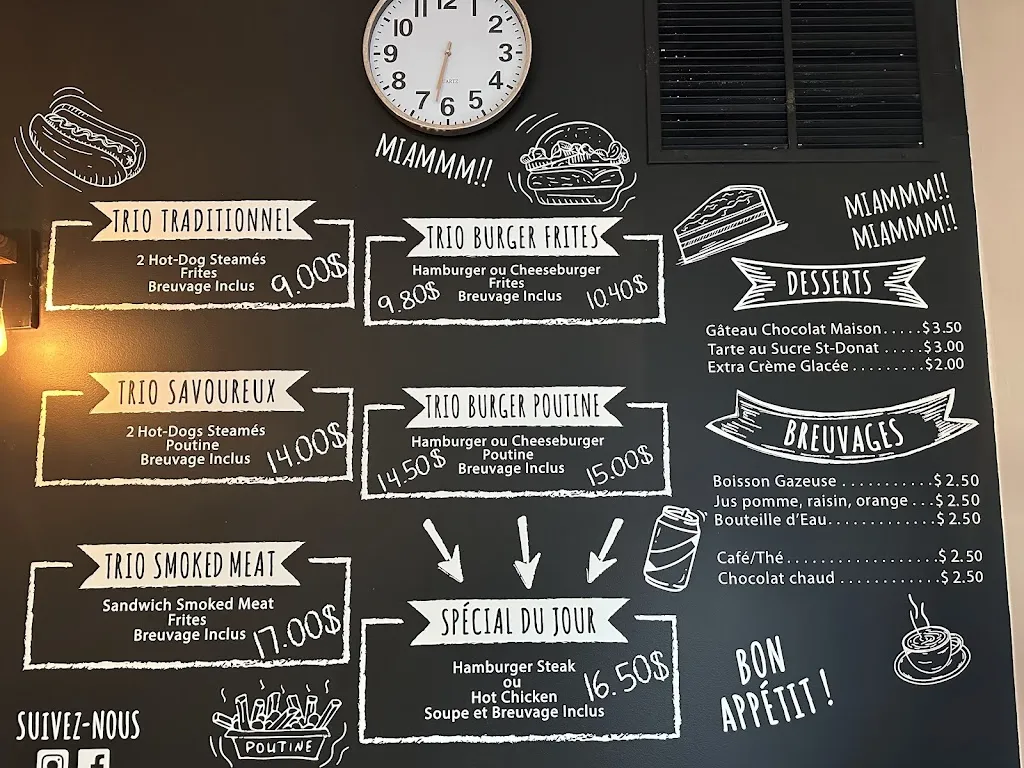 11 12
10 2
9 3
8 4
7 6 5
MIAMMM!!
TRIO TRADITIONNEL
2 Hot-Dog Steamés
Frites
Breuvage Inclus
9.00$
TRIO SAVOUREUX
2 Hot-Dogs Steamés
Poutine
Breuvage Inclus
14.00$
TRIO SMOKED MEAT
Sandwich Smoked Meat
Frites
Breuvage Inclus
17.00$
SUIVEZ-NOUS
POUTINE
TRIO BURGER FRITES
Hamburger ou Cheeseburger
Frites
Breuvage Inclus
9.80$ 10.40$
TRIO BURGER POUTINE
Hamburger ou Cheeseburger
Poutine
Breuvage Inclus
14.50$ 15.00$
SPÉCIAL DU JOUR
Hamburger Steak
ou
Hot Chicken
Soupe et Breuvage Inclus
16.50$
MIAMMM!!
MIAMMM!!
DESSERTS
Gâteau Chocolat Maison.....$3.50
Tarte au Sucre St-Donat .....$3.00
Extra Crème Glacée .........$2.00
BREUVAGES
Boisson Gazeuse ..........$ 2.50
Jus pomme, raisin, orange ...$ 2.50
Bouteille d'Eau............$ 2.50
Café/Thé.................$ 2.50
Chocolat chaud ...........$ 2.50
BON
APPÉTIT !